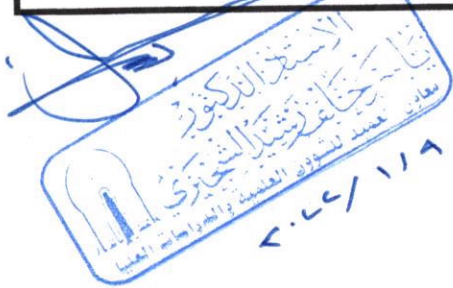 الاستاذ الدكتور
رشيد الشجيري
معاون عميد للشؤون العلمية والدراسات العليا
٢٠٢٢/١/٩